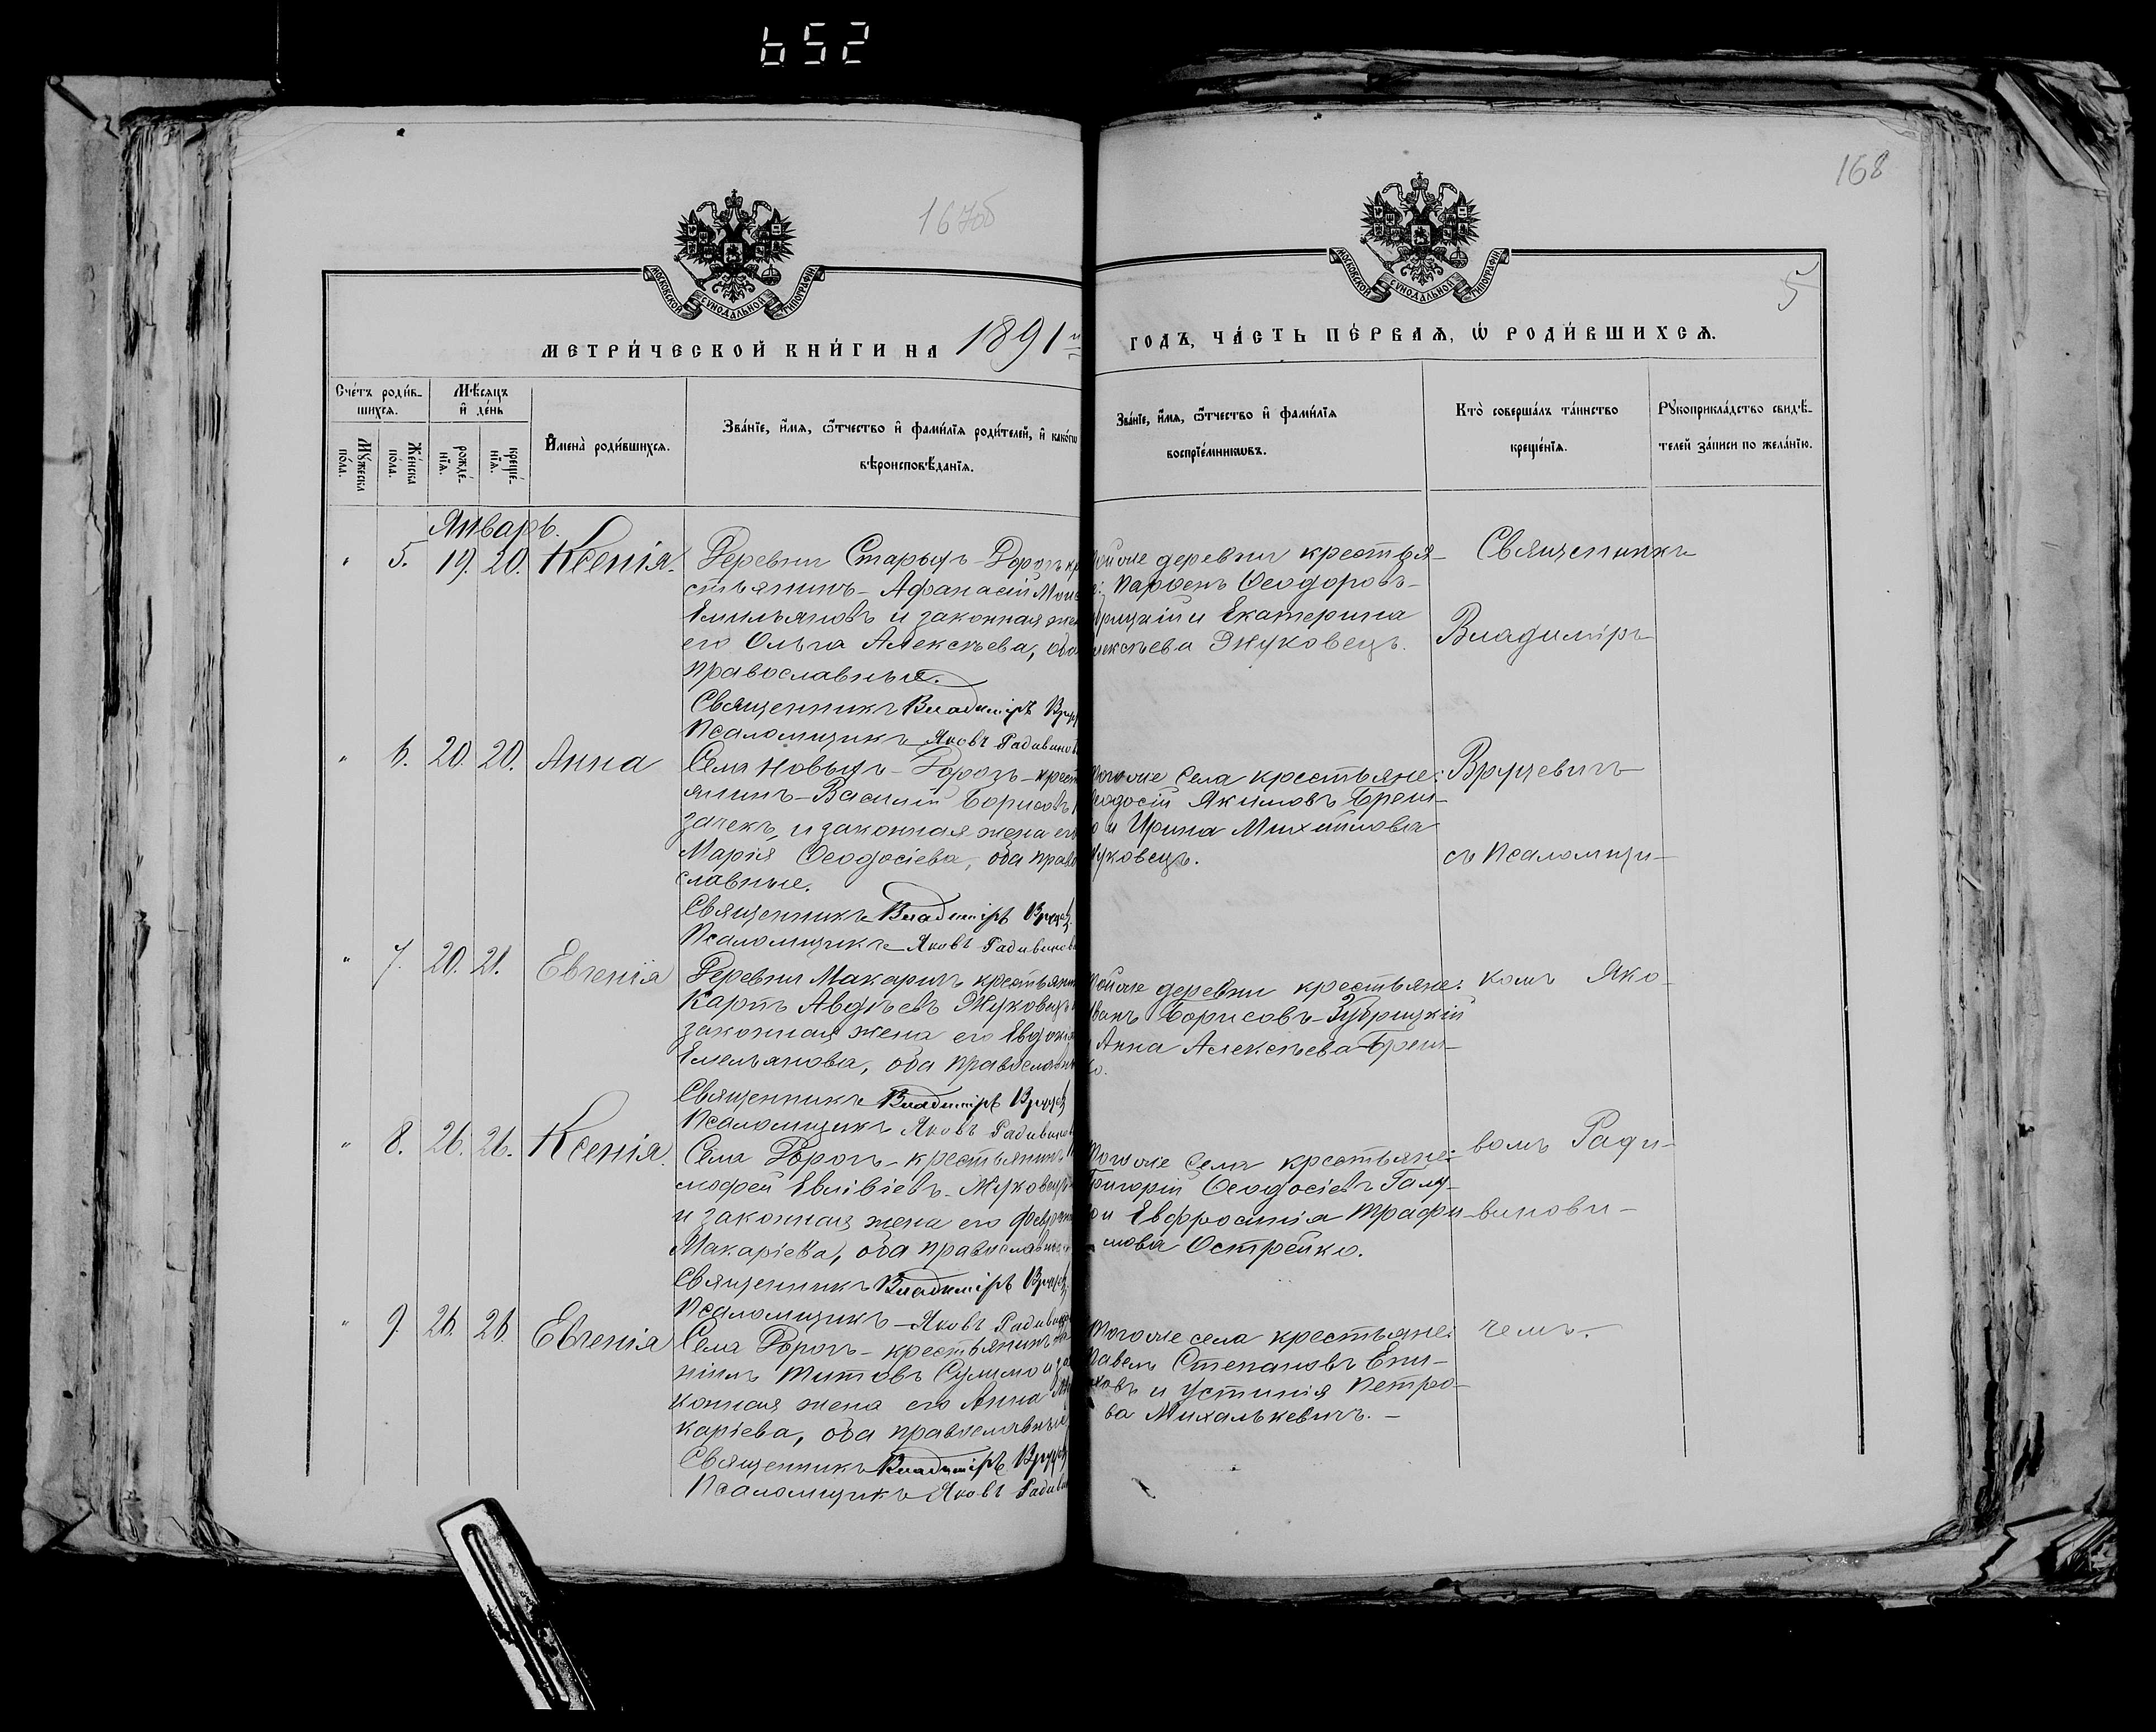 652
167об
168
5
МОСКОВСКОЙ СУНОДАЛЬНОЙ ТИПОГРАФІИ
МОСКОВСКОЙ СУНОДАЛЬНОЙ ТИПОГРАФІИ
МЕТРИ́ЧЕСКОЙ КНИ́ГИ НА 1891й
ГОДЪ, ЧА́СТЬ ПЕ́РВАѦ, Ѡ РОДИ́ВШИХСѦ.
Сче́тъ роди́в-
шихсѧ.
Мѣ́сѧцъ
и де́нь
Мꙋ́жеска
по́ла.
Же́нска
по́ла.
рожде́-
нїѧ.
креще́-
нїѧ.
Имена̀ роди́вшихсѧ.
Зва́нїе, и́мѧ, ѻ҆́тчество и фами́лїѧ роди́телей, и како́гѡ
вѣроисповѣ́данїѧ.
Зва́нїе, и́мѧ, ѻ҆́тчество и фами́лїѧ
воспрїе́мникѡвъ.
Кто̀ соверша́лъ та́инство
креще́нїѧ.
Рꙋкоприкла́дство свидѣ́-
телей за́писи по жела́нїю.
Январь.
" 5. 19. 20. Ксенія.
Деревни Старыхъ-Дорогъ кр
стьянинъ-Афанасій Мои
Емильяновъ и законная же
его Ольга Алексѣева, оба
православные.
Священникъ Владиміръ Вруц
Псаломщикъ Яковъ Радивинов
тойже деревни крестья-
е: Парѳенъ Ѳеодоровъ-
и Екатерина
лексѣева Жуковецъ.
Священникъ
Владиміръ
" 6. 20. 20. Анна
Села Новыхъ-Дорогъ-крест
янинъ-Василій Борисовъ
зачекъ, и законная жена его
Марія Ѳеодосіева, оба право
славные.
Священникъ Владиміръ Вруц
Псаломщикъ Яковъ Радивинов
тогоже села крестьяне:
еодосій Якимовъ Бреш-
о и Ирина Михайлова
уковецъ.
Вруцевичъ
съ Псаломщи-
" 7. 20. 21. Евгенія
Деревни Макаричъ крестьяни
Карпъ Авдѣевъ Жуковецъ
законная жена его Евдокія
Емельянова, оба православн
Священникъ Владиміръ Вруц
Псаломщикъ Яковъ Радивинов
тойже деревни крестьяне:
ванъ Борисовъ-Зубрицкій
Анна Алексѣева Бреш-
о.
комъ Яко-
" 8. 26. 26. Ксенія.
Села Дорогъ-крестьянинъ
мофей Жуковецъ
и законная жена его
Макаріева, оба православные
Священникъ Владиміръ Вруц
Псаломщикъ-Яковъ Радивино
тогоже села крестьяне:
ригорій Ѳеодосіевъ
и Евфросинія Трофи-
мова Острейко.
вомъ Ради-
винови-
" 9. 26. 26. Евгенія
Села Дорогъ-крестьянинъ
ніилъ Титовъ Сулимо и за
конная жена его Анна
каріева, оба православные
Священникъ Владиміръ Вруц
Псаломщикъ Яковъ Радиви
тогоже села крестьяне:
Павелъ Степановъ
и Устинія Петро-
ва Михалькевичъ.-
чемъ.